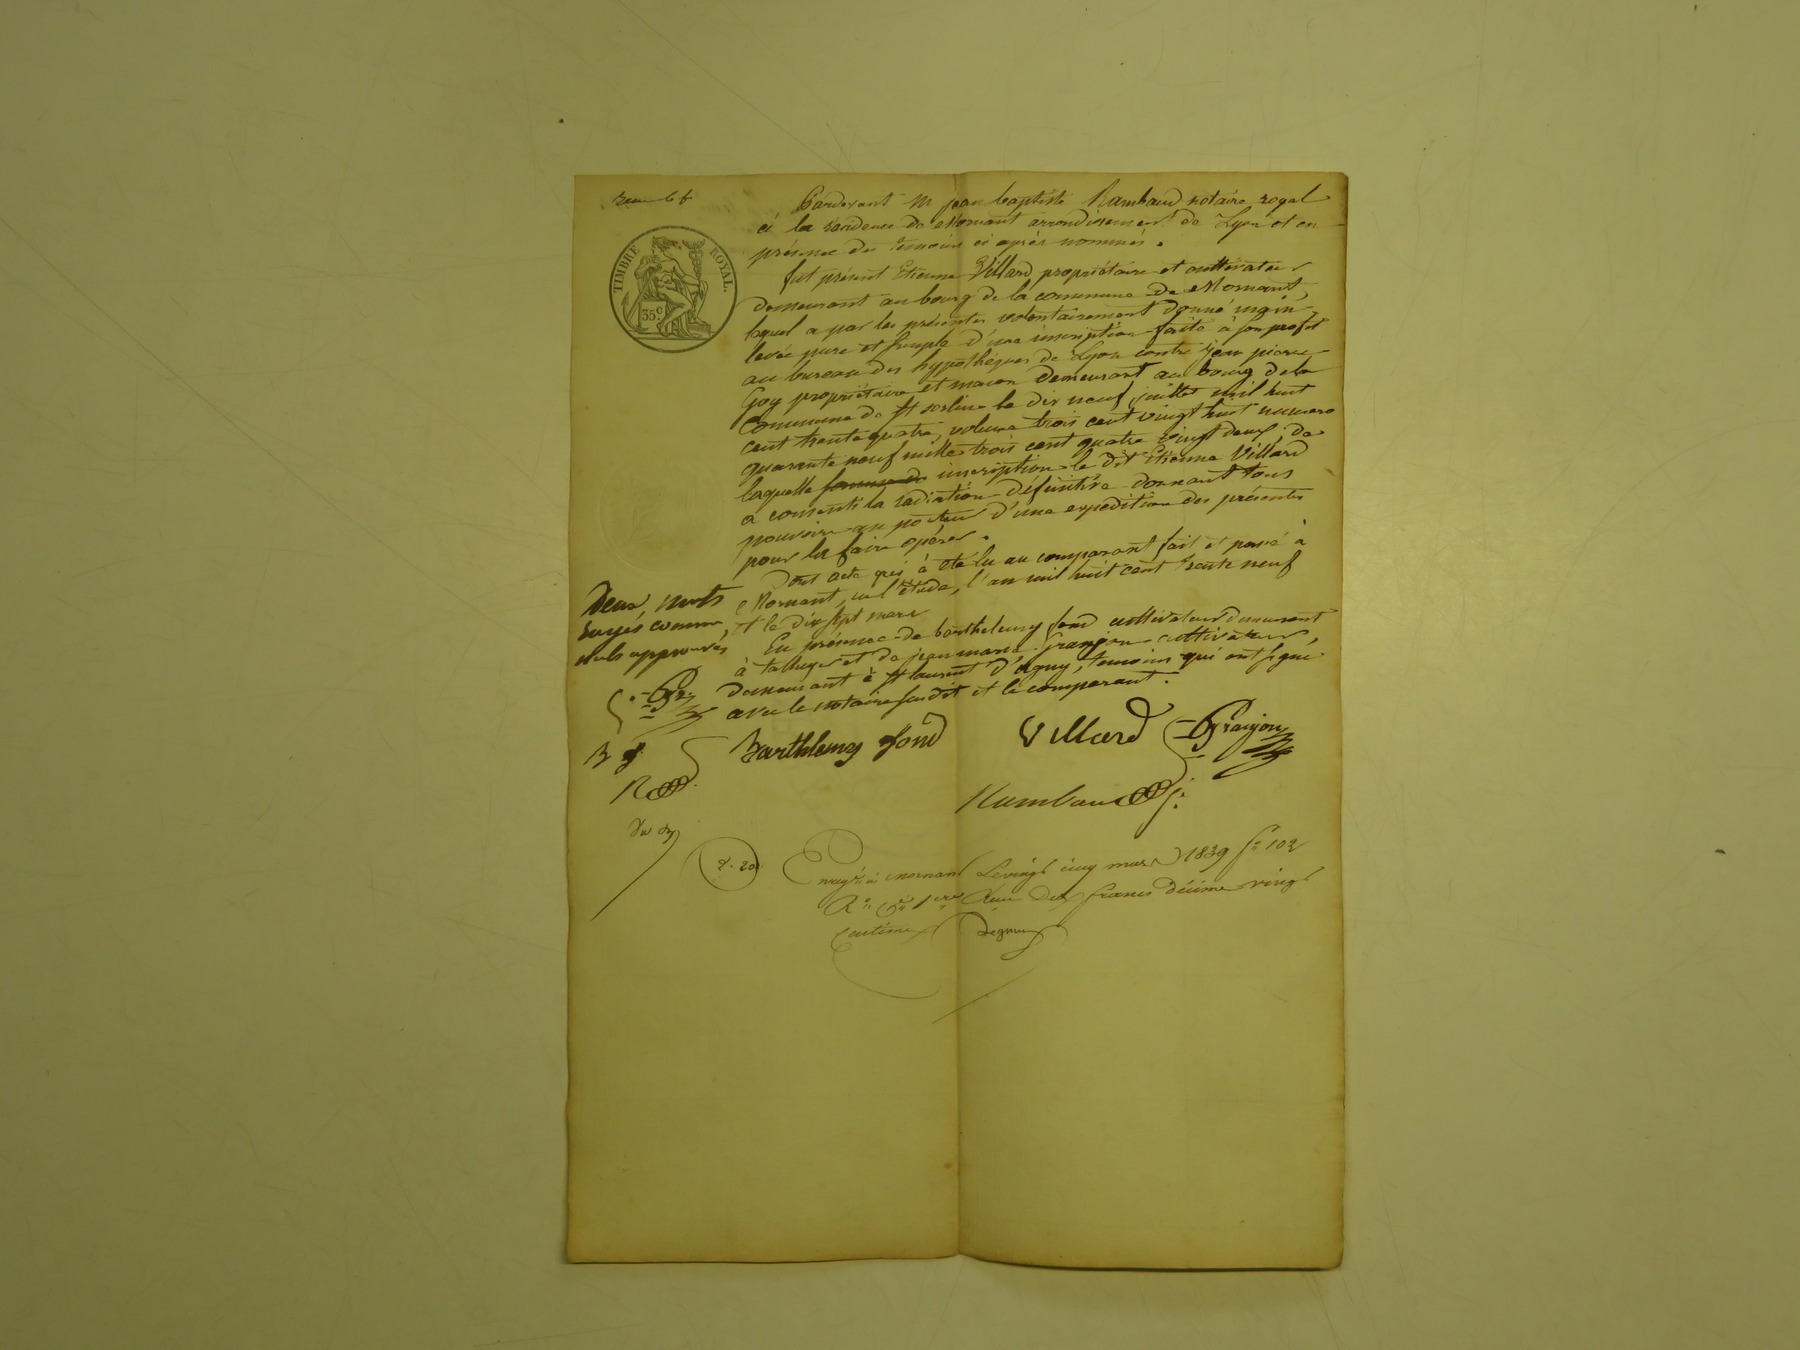 Pardevant Me jean baptiste Rambaud notaire royal
à la residence de Mornant arrondissement de Lyon et en
présence des temoins ci après nommés.
fut présent Etienne Villard propriétaire et cultivateur
demeurant au bourg de la commune de Mornant,
lequel a par les présentes volontairement donné main
levée pure et simple d'une inscription faite à son profit
au bureau des hypothèques de Lyon contre jean pierre
Goy propriétaire et macon demeurant au bourg de la
commune de St sorlin le dix neuf juillet mil huit
cent trente quatre, volume trois cent vingt huit numero
quarante neuf mille trois cent quatre vingt deux, de
laquelle inscription le dit Etienne Villard
a consenti la radiation définitive donnant tous
pouvoirs au porteur d'une expédition des présentes
pour la faire opérer.
Dont acte qui à été lu au comparant fait et passé à
Mornant, en l'étude, l'an mil huit cent trente neuf
et le dix sept mars
En présence de barthelemy fond cultivateur demeurant
à taluyers et de jean marie granjon cultivateur,
demeurant à St laurent d'agny, temoins qui ont signé
avec le notaire susdit et le comparant.
Deux mots
rayés comme
nuls approuvés
TIMBRE ROYAL.
35 c.
B f
Barthlemy fond
Villard
Granjon
R
Rambaud
2.20
Enregtré à mornant le vingt cinq mars 1839 fo 102
Ro Ce 1ere Reçu deux francs décime vingt
centimes